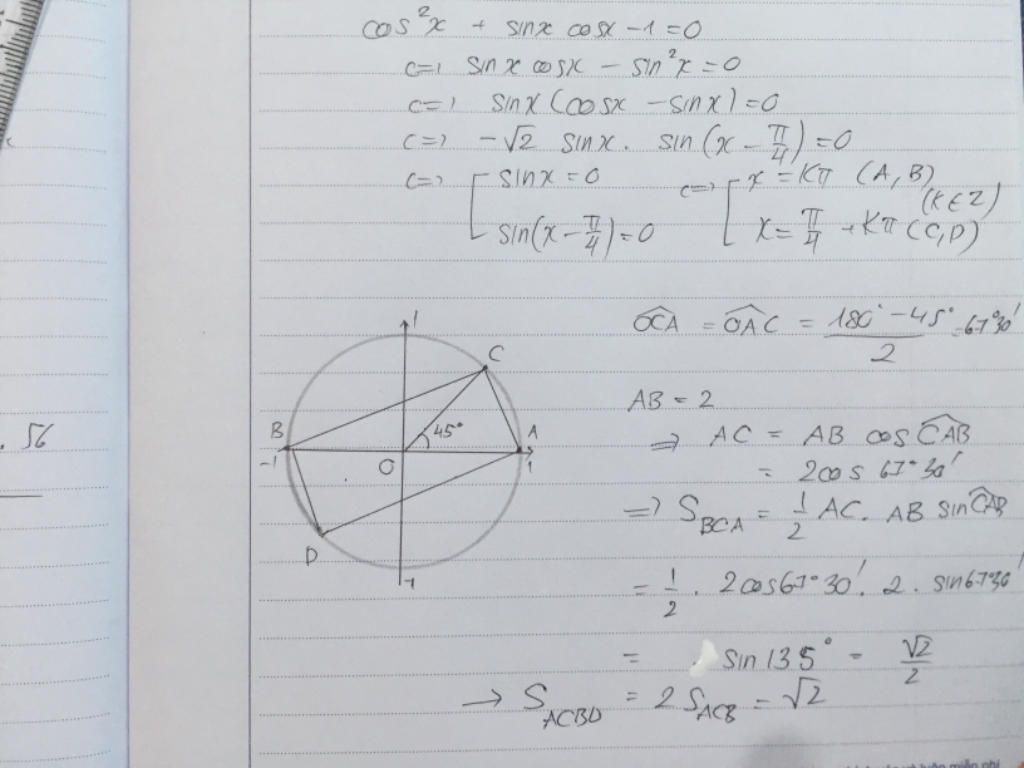 cos²x + sinx cosx - 1 = 0
<=> sinx cosx - sin²x = 0
<=> sinx (cosx - sinx) = 0
<=> -√2 sinx. sin(x - π/4) = 0
<=> [ sinx = 0 <=> [ x = Kπ (A, B)
(K∈Z)
sin(x - π/4) = 0 x = π/4 + Kπ (C, D)
OCA = OAC = (180° - 45°)/2 = 67°30'
AB = 2
=> AC = AB cos CAB
= 2cos 67°30'
=> S_BCA = 1/2 AC. AB sin CAB
= 1/2 . 2cos67°30'. 2. sin67°30'
= sin 135° = √2/2
→ S_ACBD = 2 S_ACB = √2
1
C
B
45°
A
-1
O
1
D
-1
. 56